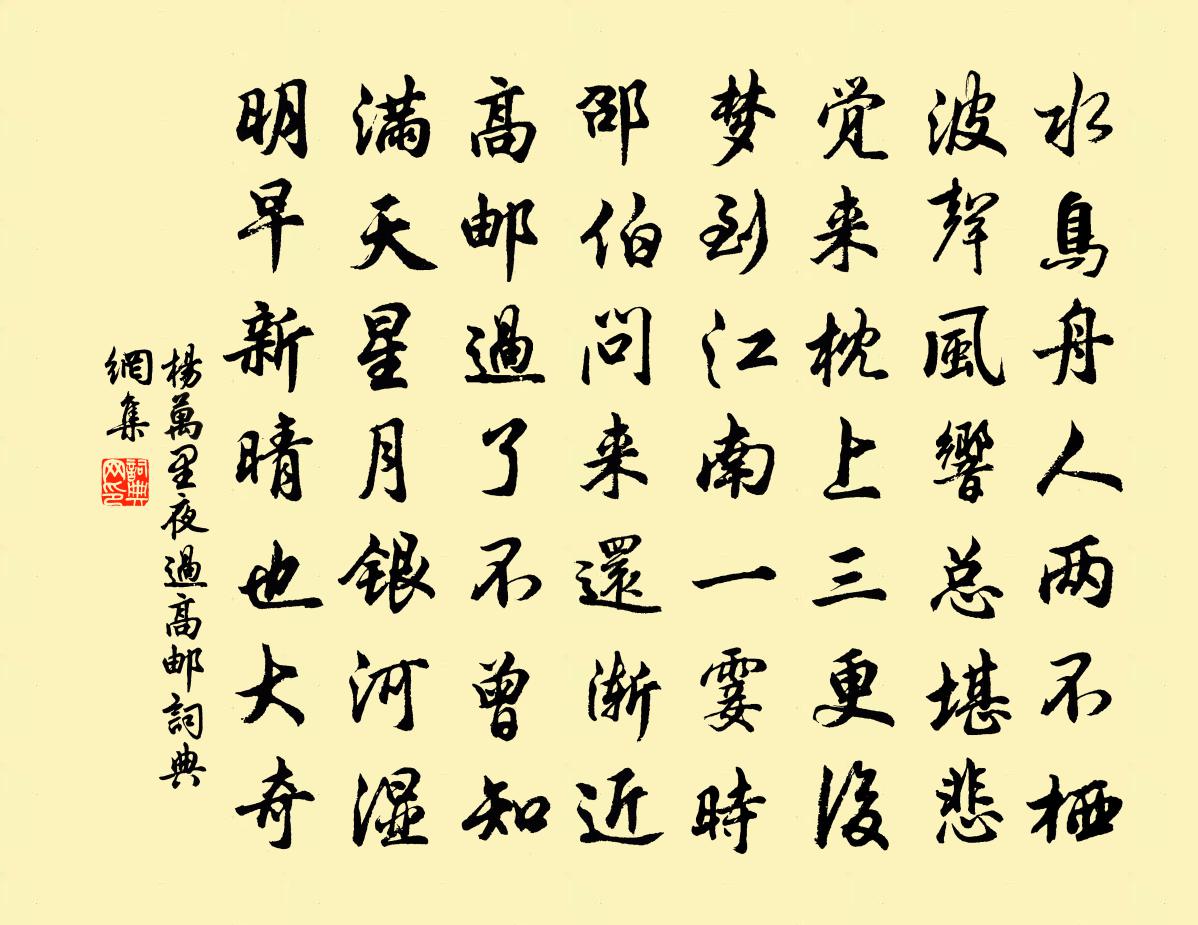 水鳥舟人两不栖
波聲風響总堪悲
觉来枕上三更後
梦到江南一霎時
邵伯问来還渐近
高邮過了不曾知
满天星月銀河湿
明早新晴也大奇
楊萬里夜過高邮詞典
網集
詞典
网印